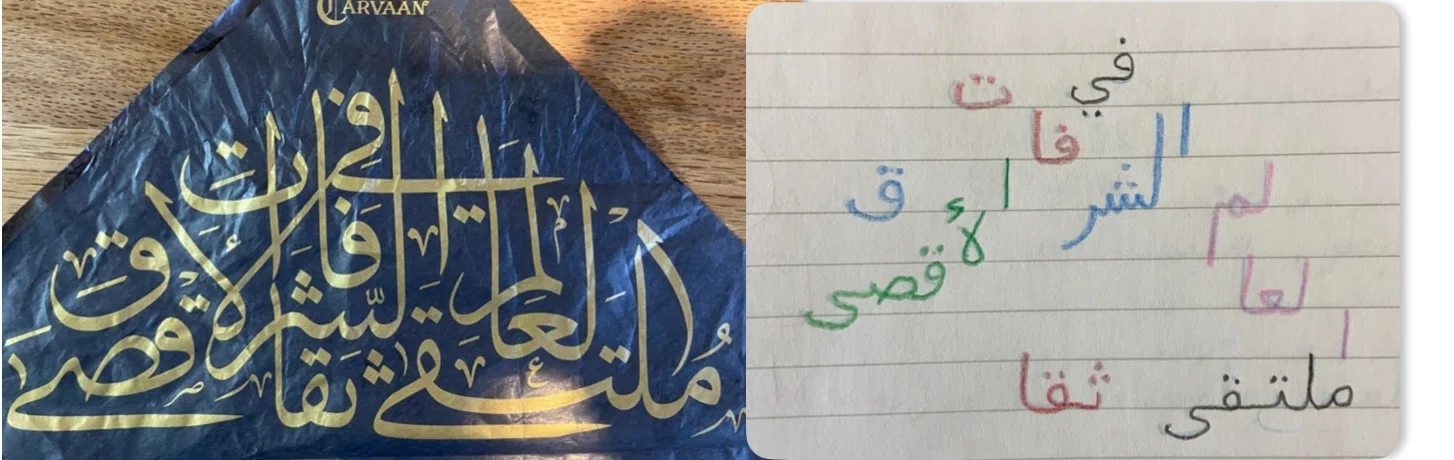 CARVAAN
مُلتقى ثقافات العالم في الشرق الأقصى
في ت
فا
لم الشر الأ ق
لعا قصى
ا
ملتقى ثقا